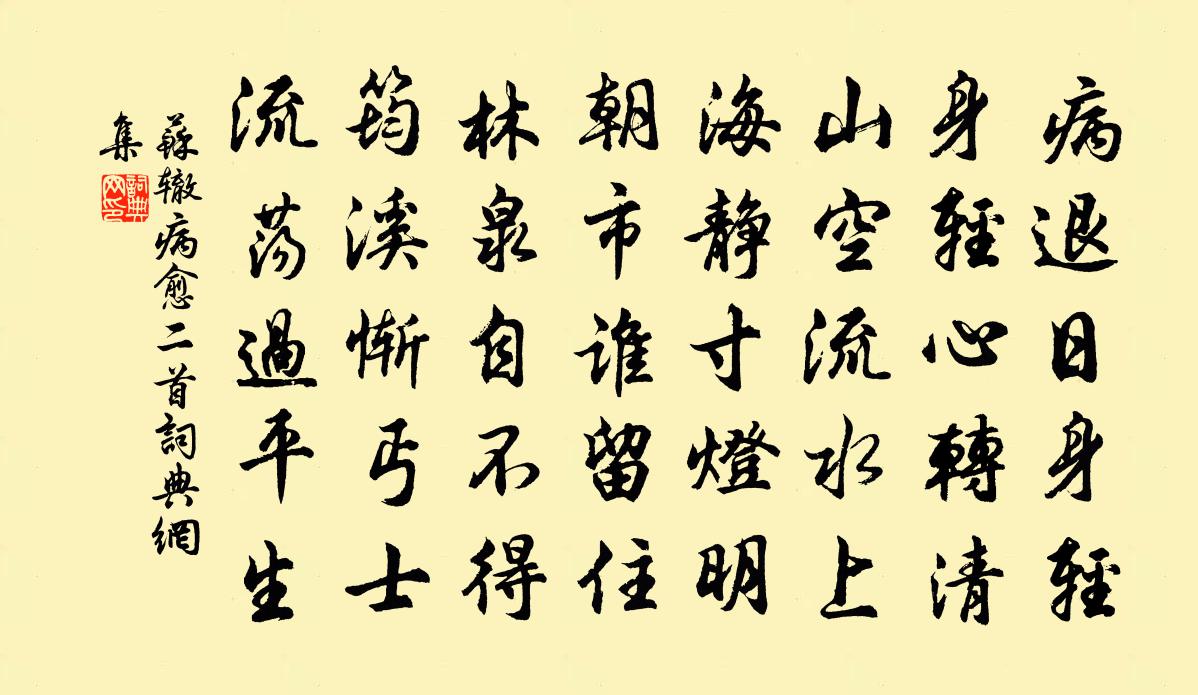 病退日身輕
身輕心轉清
山空流水上
海靜寸燈明
朝市誰留住
林泉自不得
筠溪慚丐士
流蕩過平生
蘇轍病愈二首詞典網
集
詞典
网印